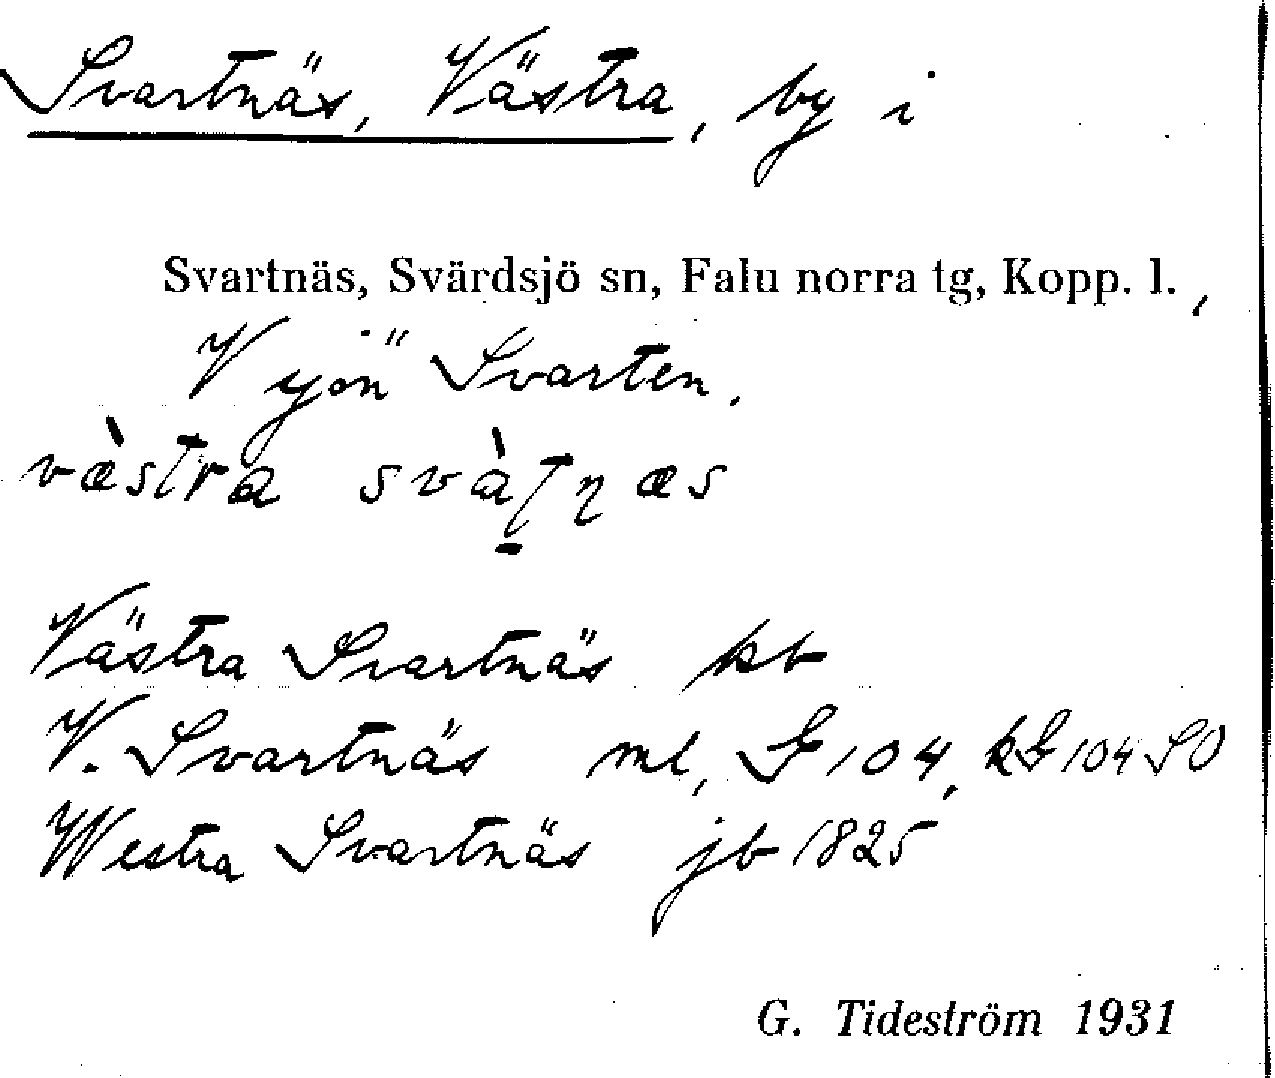 Svartnäs, Västra, by i
Svartnäs, Svärdsjö sn, Falu norra tg, Kopp. l.,
V sjön Svarten.
væ̀stra svàʈɳæs
Västra Svartnäs kb
V. Svartnäs ml, G 104, kG 104 SO
Westra Svartnäs jb 1825
G. Tideström 1931